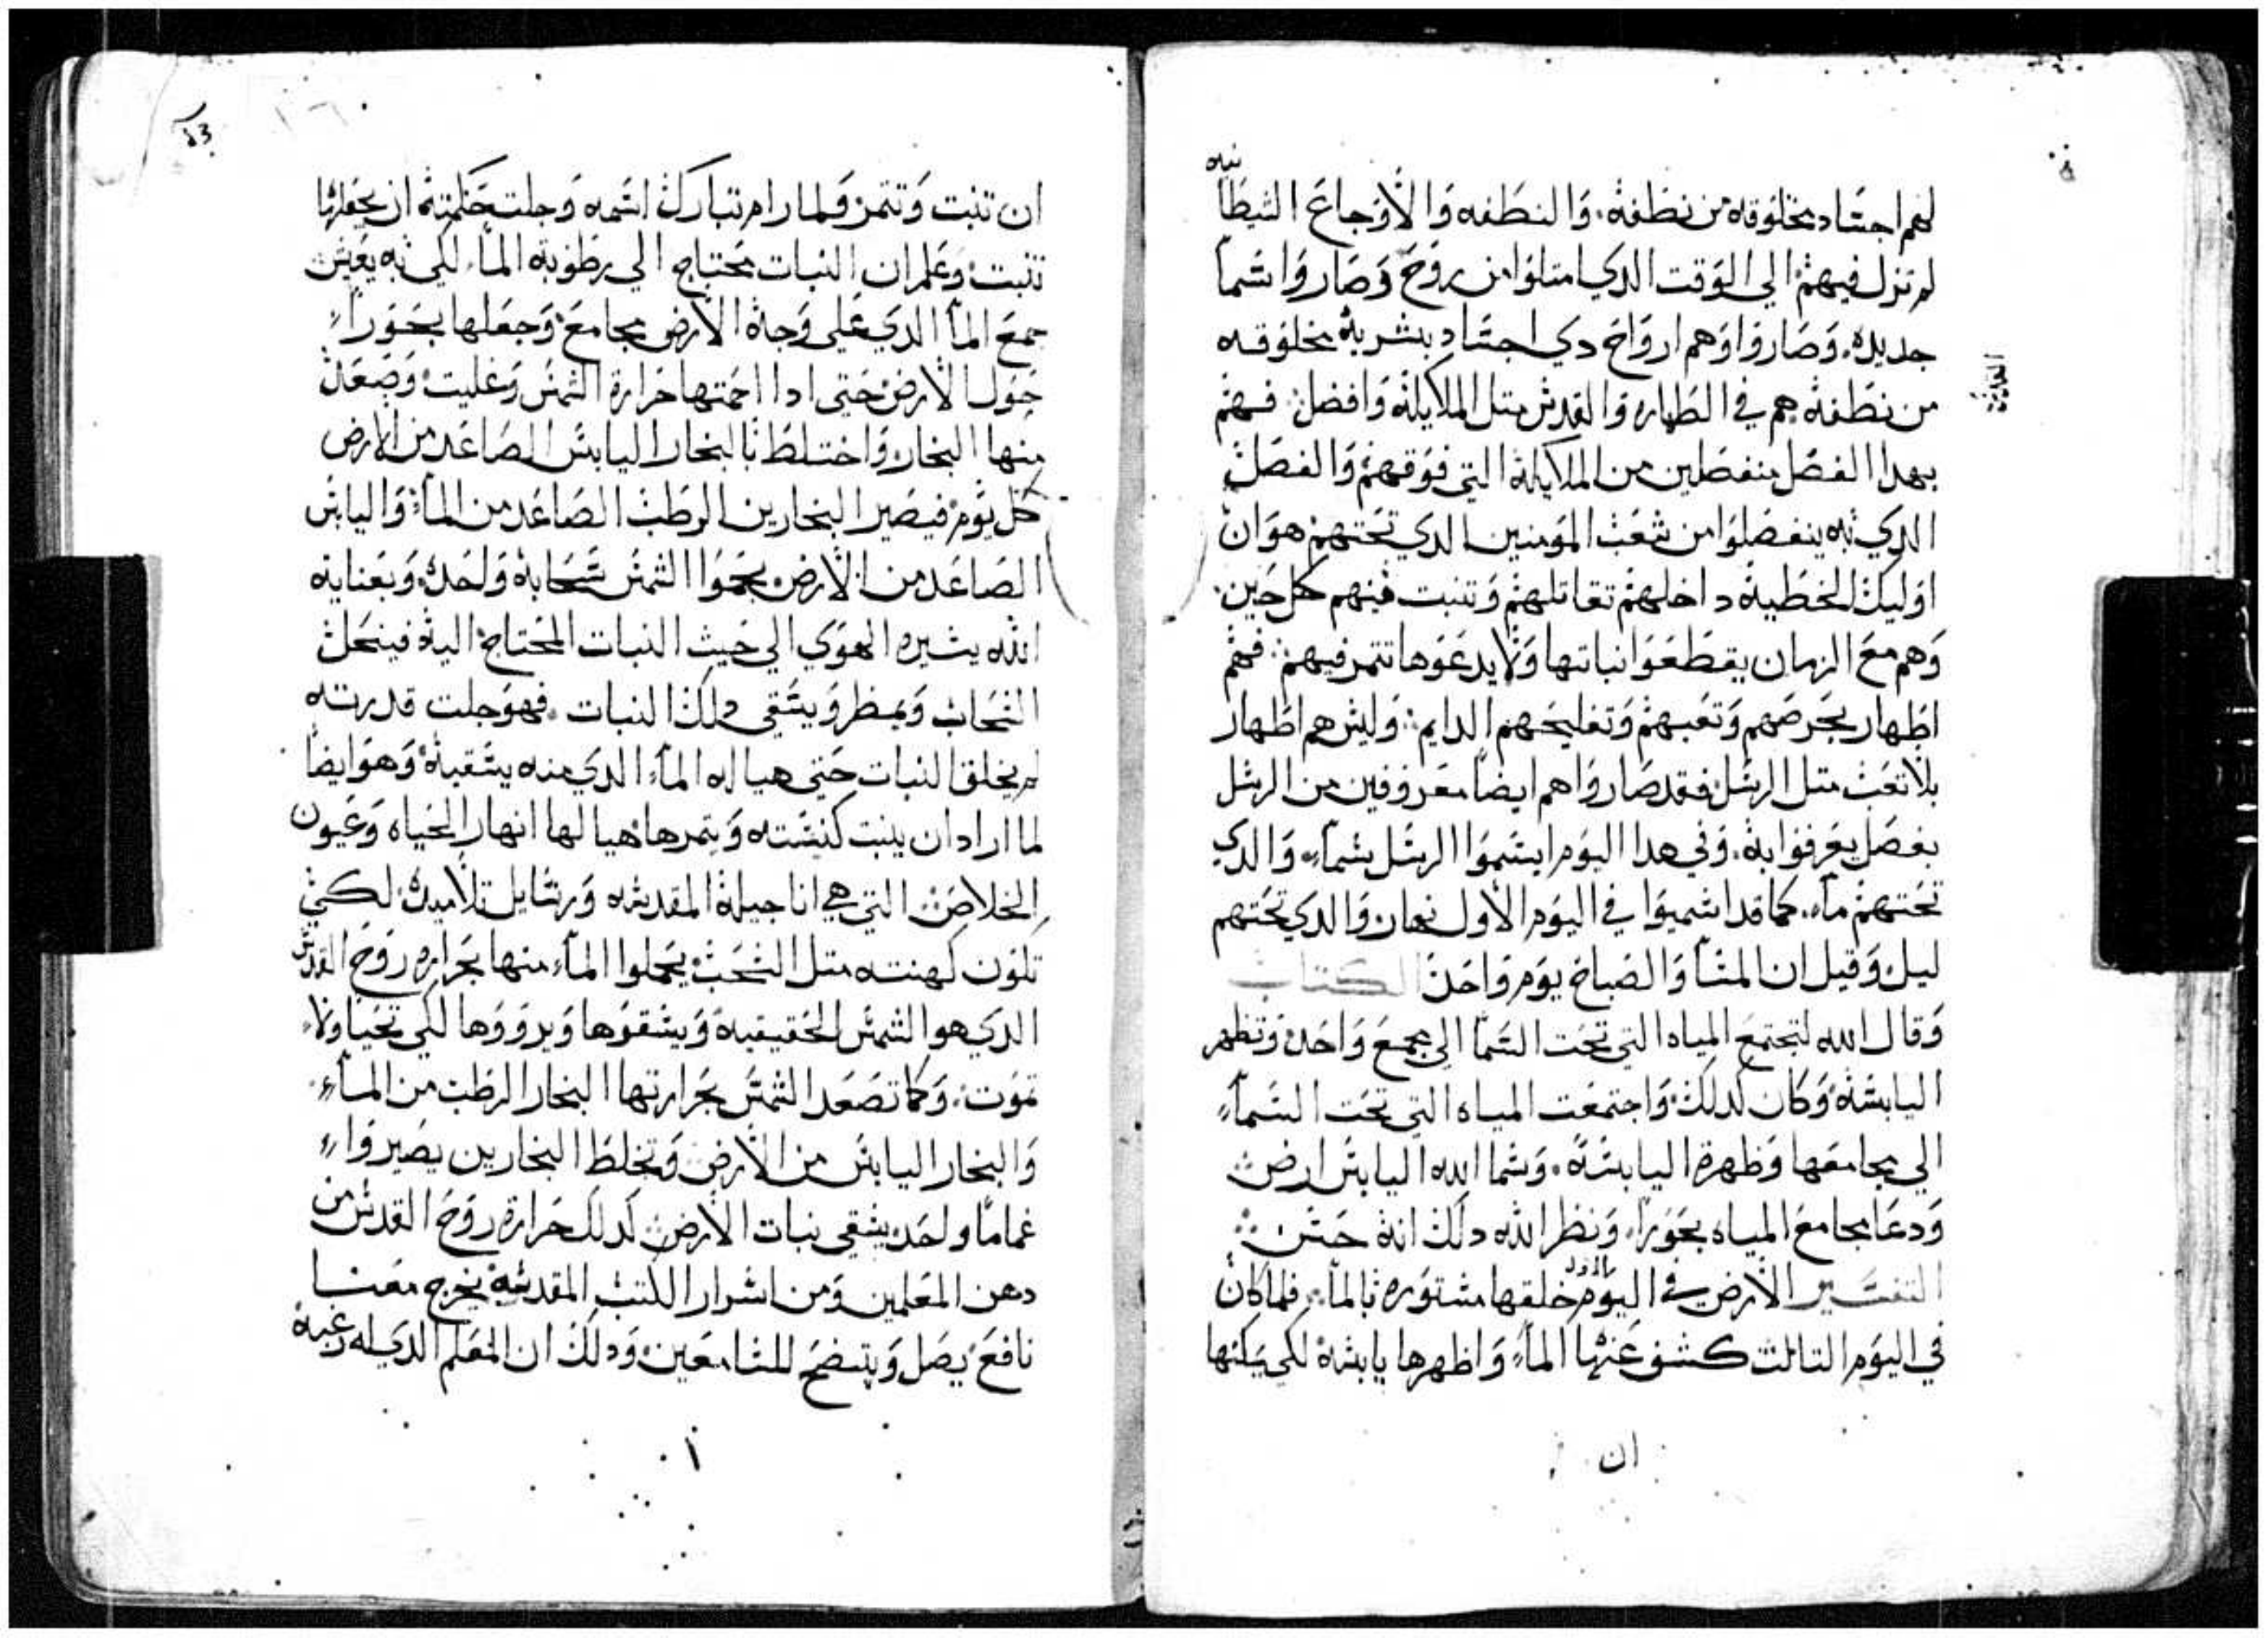 لهم اجساد مخلوقه من نطفة. والنطفه والاوجاع الشيطانيه
لم تزل فيهم الي الوقت الدي امتلوا من روح وصاروا سما
جديده. وصاروا وهم ارواح دي اجساد بشرية مخلوقه
من نطفة هم في الطهاره والقدس متل الملايكة وافضل. فهم
بهدا الفصل منفصلين من الملايكة التي فوقهم والفصل
الدي به ينفصلوا من شعب المومنين الدي تحتهم هو ان
اوليك الخطية داخلهم تقاتلهم وتنبت فيهم كل حين.
وهم مع الزمان يقطعوا نباتها ولا يدعوها تتمر فيهم. فهم
اطهار بحرصهم وتعبهم وتفليحهم الدايم. وليس هم اطهار
بلا تعب متل الرسل فقد صاروا هم ايضا معروفين من الرسل
بفصل يعرفوا بة. وفي هدا اليوم ايسموا الرسل سماء والدي
تحتهم ماء. كما قد اسميوا في اليوم الاول نهار والدي تحتهم
ليل وقيل ان المسا والصباح يوم واحد الكتاب
وقال الله لتجتمع المياه التي تحت السما الي مجمع واحد وتظهر
اليابسة وكان كدلك واجتمعت المياه التي تحت السماء
الي مجامعها وظهرة اليابسة. وسما الله اليابس ارض
ودعا مجامع المياه بحورا. ونظر الله دلك انة حسن
التفسير الارض في اليوم الاول خلقها مستوره بالماء. فلما كان
في اليوم التالت كشف عنها الماء واظهرها يابسة لكي يمكنها
ان
ان تنبت وتتمر ولما رام تبارك اسمه وجلت حكمته ان يجعلها
تنبت وعلم ان النبات محتاج الي رطوبة الماء لكي به يعيش
جمع الماء الدي علي وجه الارض مجامع وجعلها بحورا
حول الارض حتي ادا احمتها حرارة الشمس وغليت وصعد
منها البخار واختلط بالبخار اليابس الصاعد من الارض
كل يوم فيصير البخارين الرطب الصاعد من الماء واليابس
الصاعد من الارض بحموا الشمس سحابة واحده وبعناية
الله يسيره الهوي الي حيث النبات المحتاج اليه فينحل
السحاب ويمطر ويسقي دلك النبات. فهو جلت قدرته
لم يخلق النبات حتي هيا له الماء الدي منه يسقية وهو ايضا
لما اراد ان ينبت كنيسته ويتمرها هيا لها انهار الحياه وعيون
الخلاص التي هي اناجيله المقدسه ورسايل تلاميده لكي
تكون كهنته متل السحب يحملوا الماء منها بحراره روح القدس
الدي هو الشمس الحقيقيه ويسقوها ويرووها لكي تحيا ولا
تموت. وكما تصعد الشمس بحرارتها البخار الرطب من الماء
والبخار اليابس من الارض وتخلط البخارين يصيروا
غماما واحد يسقي نبات الارض كدلك حرارة روح القدس من
دهن المعلمين ومن اسرار الكتب المقدسه يخرج معنا
نافع يصل ويتضح للسامعين ودلك ان المعلم الدي له رغبة